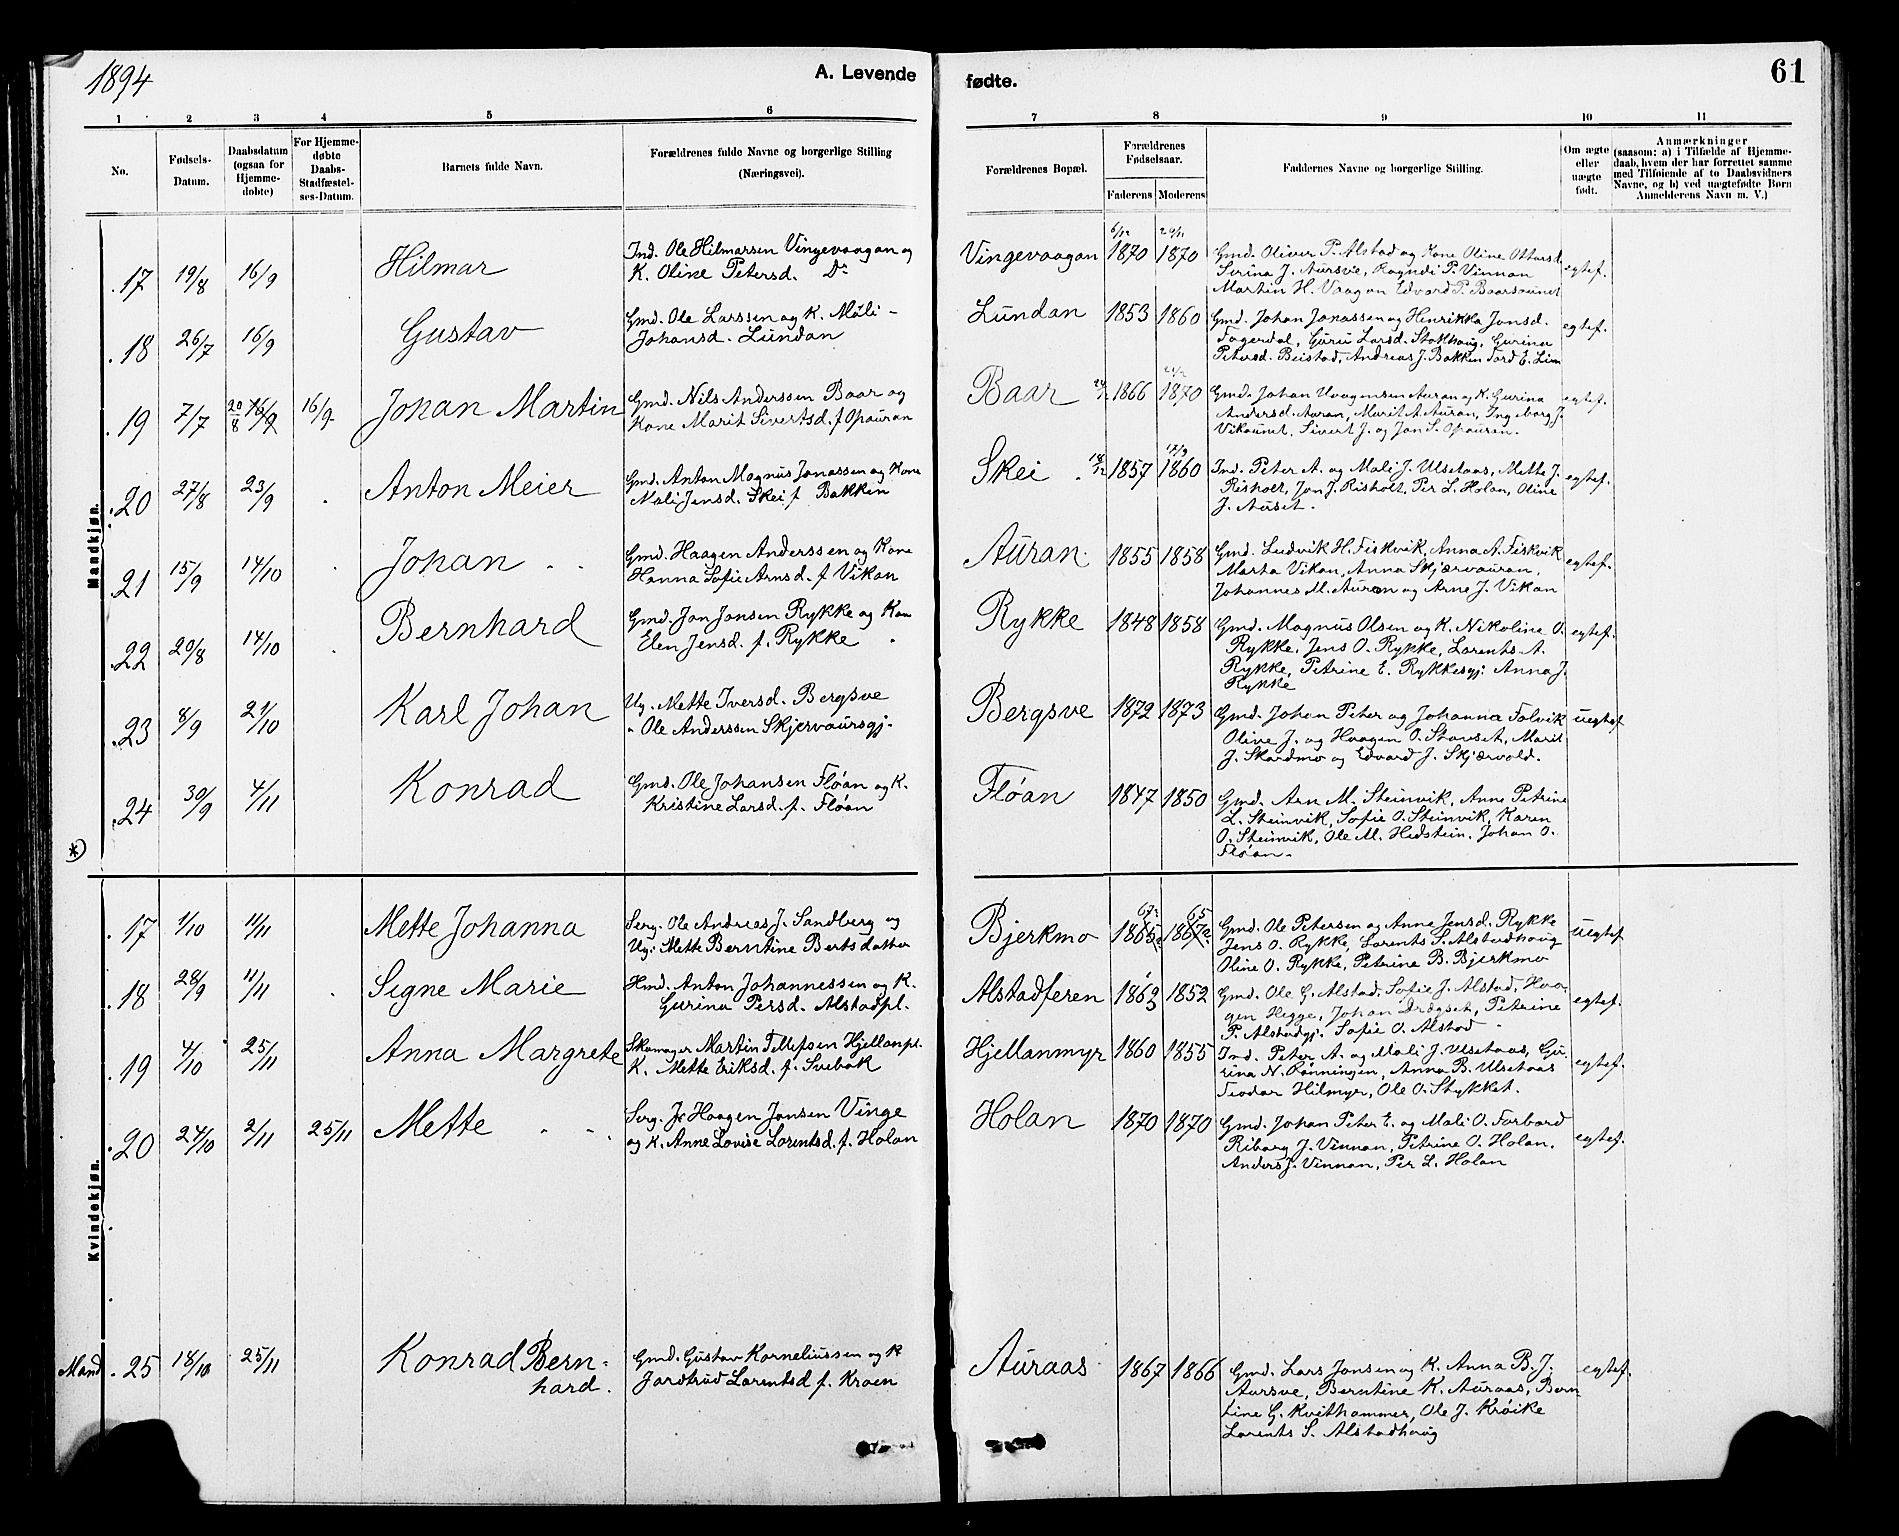 1894
A. Levende fødte.
61
1 2 3 4 5 6 7 8 9 10 11
No.
Fødsels-
Datum.
Daabsdatum
(ogsaa for
Hjemme-
døbte)
For Hjemme-
døbte
Daabs-
Stadfæstel-
ses-Datum.
Barnets fulde Navn.
Forældrenes fulde Navne og borgerlige Stilling
(Næringsvei).
Forældrenes Bopæl.
Forældrenes
Fødselsaar.
Faderens Moderens
Faddernes Navne og borgerlige Stilling.
Om ægte
eller
uægte
født.
Anmærkninger
(saasom: a) i Tilfælde af Hjemme-
daab, hvem der har forrettet samme
med Tilføiende af to Daabsvidners
Navne, og b) ved uægtefødte Børn
Anmelderens Navn m. V.)
Mandkjøn.
17 19/8 16/9 Hilmar
Ind. Ole Hilmarsen Vingevaagan og
K. Oline Petersd. Do
Vingevaagan 6/12 1870 1870
Gmd. Oliver P. Alstad og Kone Oline Ottersd.
Serina J. Aursve, Ragndi P. Vinnan
Martin H. Vaagan Edvard P. Baarsaunet
egtef.
18 26/7 16/9 Gustav
Gmd. Ole Larssen og K. Mali
Johansd. Lundan
Lundan 1853 1860
Gmd. Johan Jonassen og Henrikka Jonsd.
Fagerdal, Guru Larsd. Stokhaug, Gurina
Petersd. Beistad, Andreas J. Bakken Tord E. Lien
egtef.
19 7/7 20/8 16/9 16/9 Johan Martin
Gmd. Nils Anderssen Baar og
Kone Marit Sivertsd. f Opauran
Baar 1866 1870
Gmd. Johan Haagensen Auran og K. Gurina
Andersd. Auran, Marit A. Auran, Ingeborg J.
Vikaunet, Sivert J. og Jon S. Opauren.
egtef.
20 27/8 23/9 Anton Meier
Gmd. Anton Magnus Jonassen og Kone
Mali Jensd. Skei f Bakken
Skei 18/12 1857 1860
Ind. Peter A. og Mali J. Ulsetaas, Mette J.
Risholt, Jon J. Risholt, Per L. Holan, Oline
J. Auset.
egtef.
21 15/9 14/10 Johan
Gmd. Haagen Anderssen og Kone
Hanna Sofie Arnsd. f Vikan
Auran 1855 1858
Gmd. Ludvik H. Fiskvik, Anna A. Fiskvik
Marta Vikan, Anna Skjærvauran,
Johannes M. Auran og Arne J. Vikan
egtef.
22 20/8 14/10 Bernhard
Gmd. Jon Jonsen Rykke og Kone
Elen Jensd. f. Rykke
Rykke 1848 1858
Gmd. Magnus Olsen og K. Nikoline O.
Rykke, Jens O. Rykke, Lorents A.
Rykke, Petrine E. Rykkesgj. Anna J.
Rykke
egtef.
23 8/9 21/10 Karl Johan
Ug. Mette Iversd. Bergsve
" Ole Anderssen Skjervaursgj.
Bergsve 1872 1873
Gmd. Johan Peter og Johanna Folvik
Oline J. og Haagen O. Stauset, Marit
J. Skardmo og Edvard J. Skjærvold.
uegtef
24 30/9 4/11 Konrad
Gmd. Ole Johansen Flóan og K.
Kristine Larsd. f. Flóan
Flóan 1847 1850
Gmd. Arn M. Steinvik, Anne Petrine
L. Steinvik, Sofie O. Steinvik, Karen
O. Steinvik, Ole M. Hedstein, Johan O.
Flóan.
*
Kvindekjøn.
17 1/10 11/11 Mette Johanna
Serg. Ole Andreas J. Sandberg og
Ug. Mette Berntine Bertsdatter
Bjerkmo 67 65
Gmd. Ole Petersen og Anne Jensd. Rykke
Jens O. Rykke, Lorents S. Alstadhaug
Oline O. Rykke, Petrine B. Bjerkmo
uegtef
18 28/9 11/11 Signe Marie
Hmd. Anton Johannessen og K.
Gurina Persd. Alstadpl.
Alstadferen 1852
Gmd. Ole G. Alstad, Sofie J. Alstad, Haa-
gen Hegge, Johan Drogset, Petrine
P. Alstadgj. Sofie O. Alstad
egtef.
19 4/10 25/11 Anna Margrete
Skomager Martin Tellefsen Hjellanpl.
K. Mette Eriksd. f. Svebak
Hjellanmyr 1860 1855
Ind. Peter A. og Mali J. Ulsetaas, Gu-
rina N. Rønningen, Anna B. Ulsetaas
Teodor Hilmyr, Ole O. Stykket.
egtef.
20 24/10 2/11 25/11 Mette
Serg. Jr Haagen Jonsen Vinge
og K. Anne Lovise Lorentsd. f. Holan
Holan 1870 1870
Gmd. Johan Peter E. og Mali O. Forbord
Riborg J. Vinnan, Petrine O. Holan,
Anders J. Vinnan, Per L. Holan
egtef.
Mand 25 18/10 25/11 Konrad Bern-
hard.
Gmd. Gustav Korneliussen og K
Jardtrud Lorentsd f. Kroen
Auraas 1867 1866
Gmd. Lars Jonsen og K. Anna B. J.
Aursve, Berntine K. Auraas, Bern-
tine G. Kvithammer, Ole J. Krøike
Lorents S. Alstadhaug
egtef.